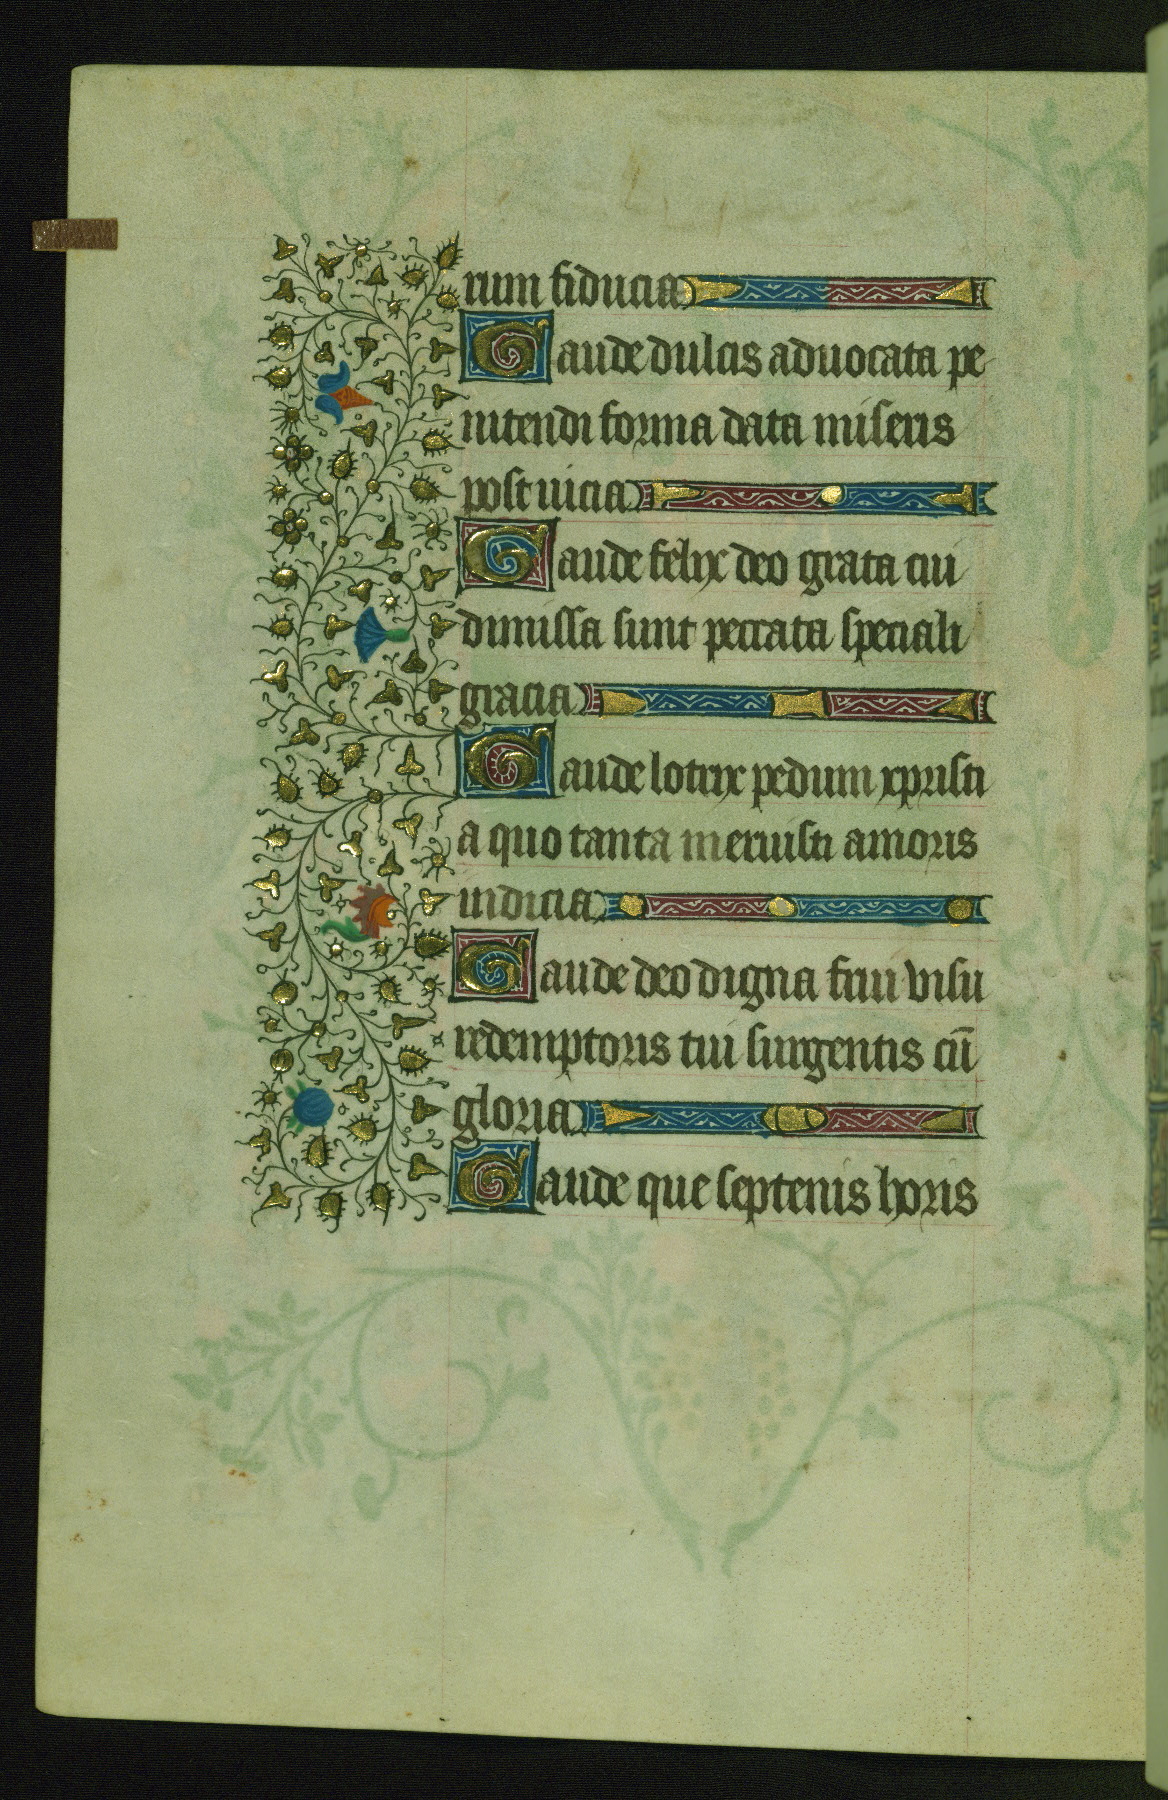 rum fiducia
Gaude dulcis aduocata pe
nitendi forma data miseris
post uicia
Gaude felix deo grata cui
dimissa sunt peccata speciali
gracia
Gaude lotrix pedum xpristi
a quo tanta meruisti amoris
indicia
Gaude deo digna frui visu
redemptoris tui surgentis cū
gloria
Gaude que septenis horis